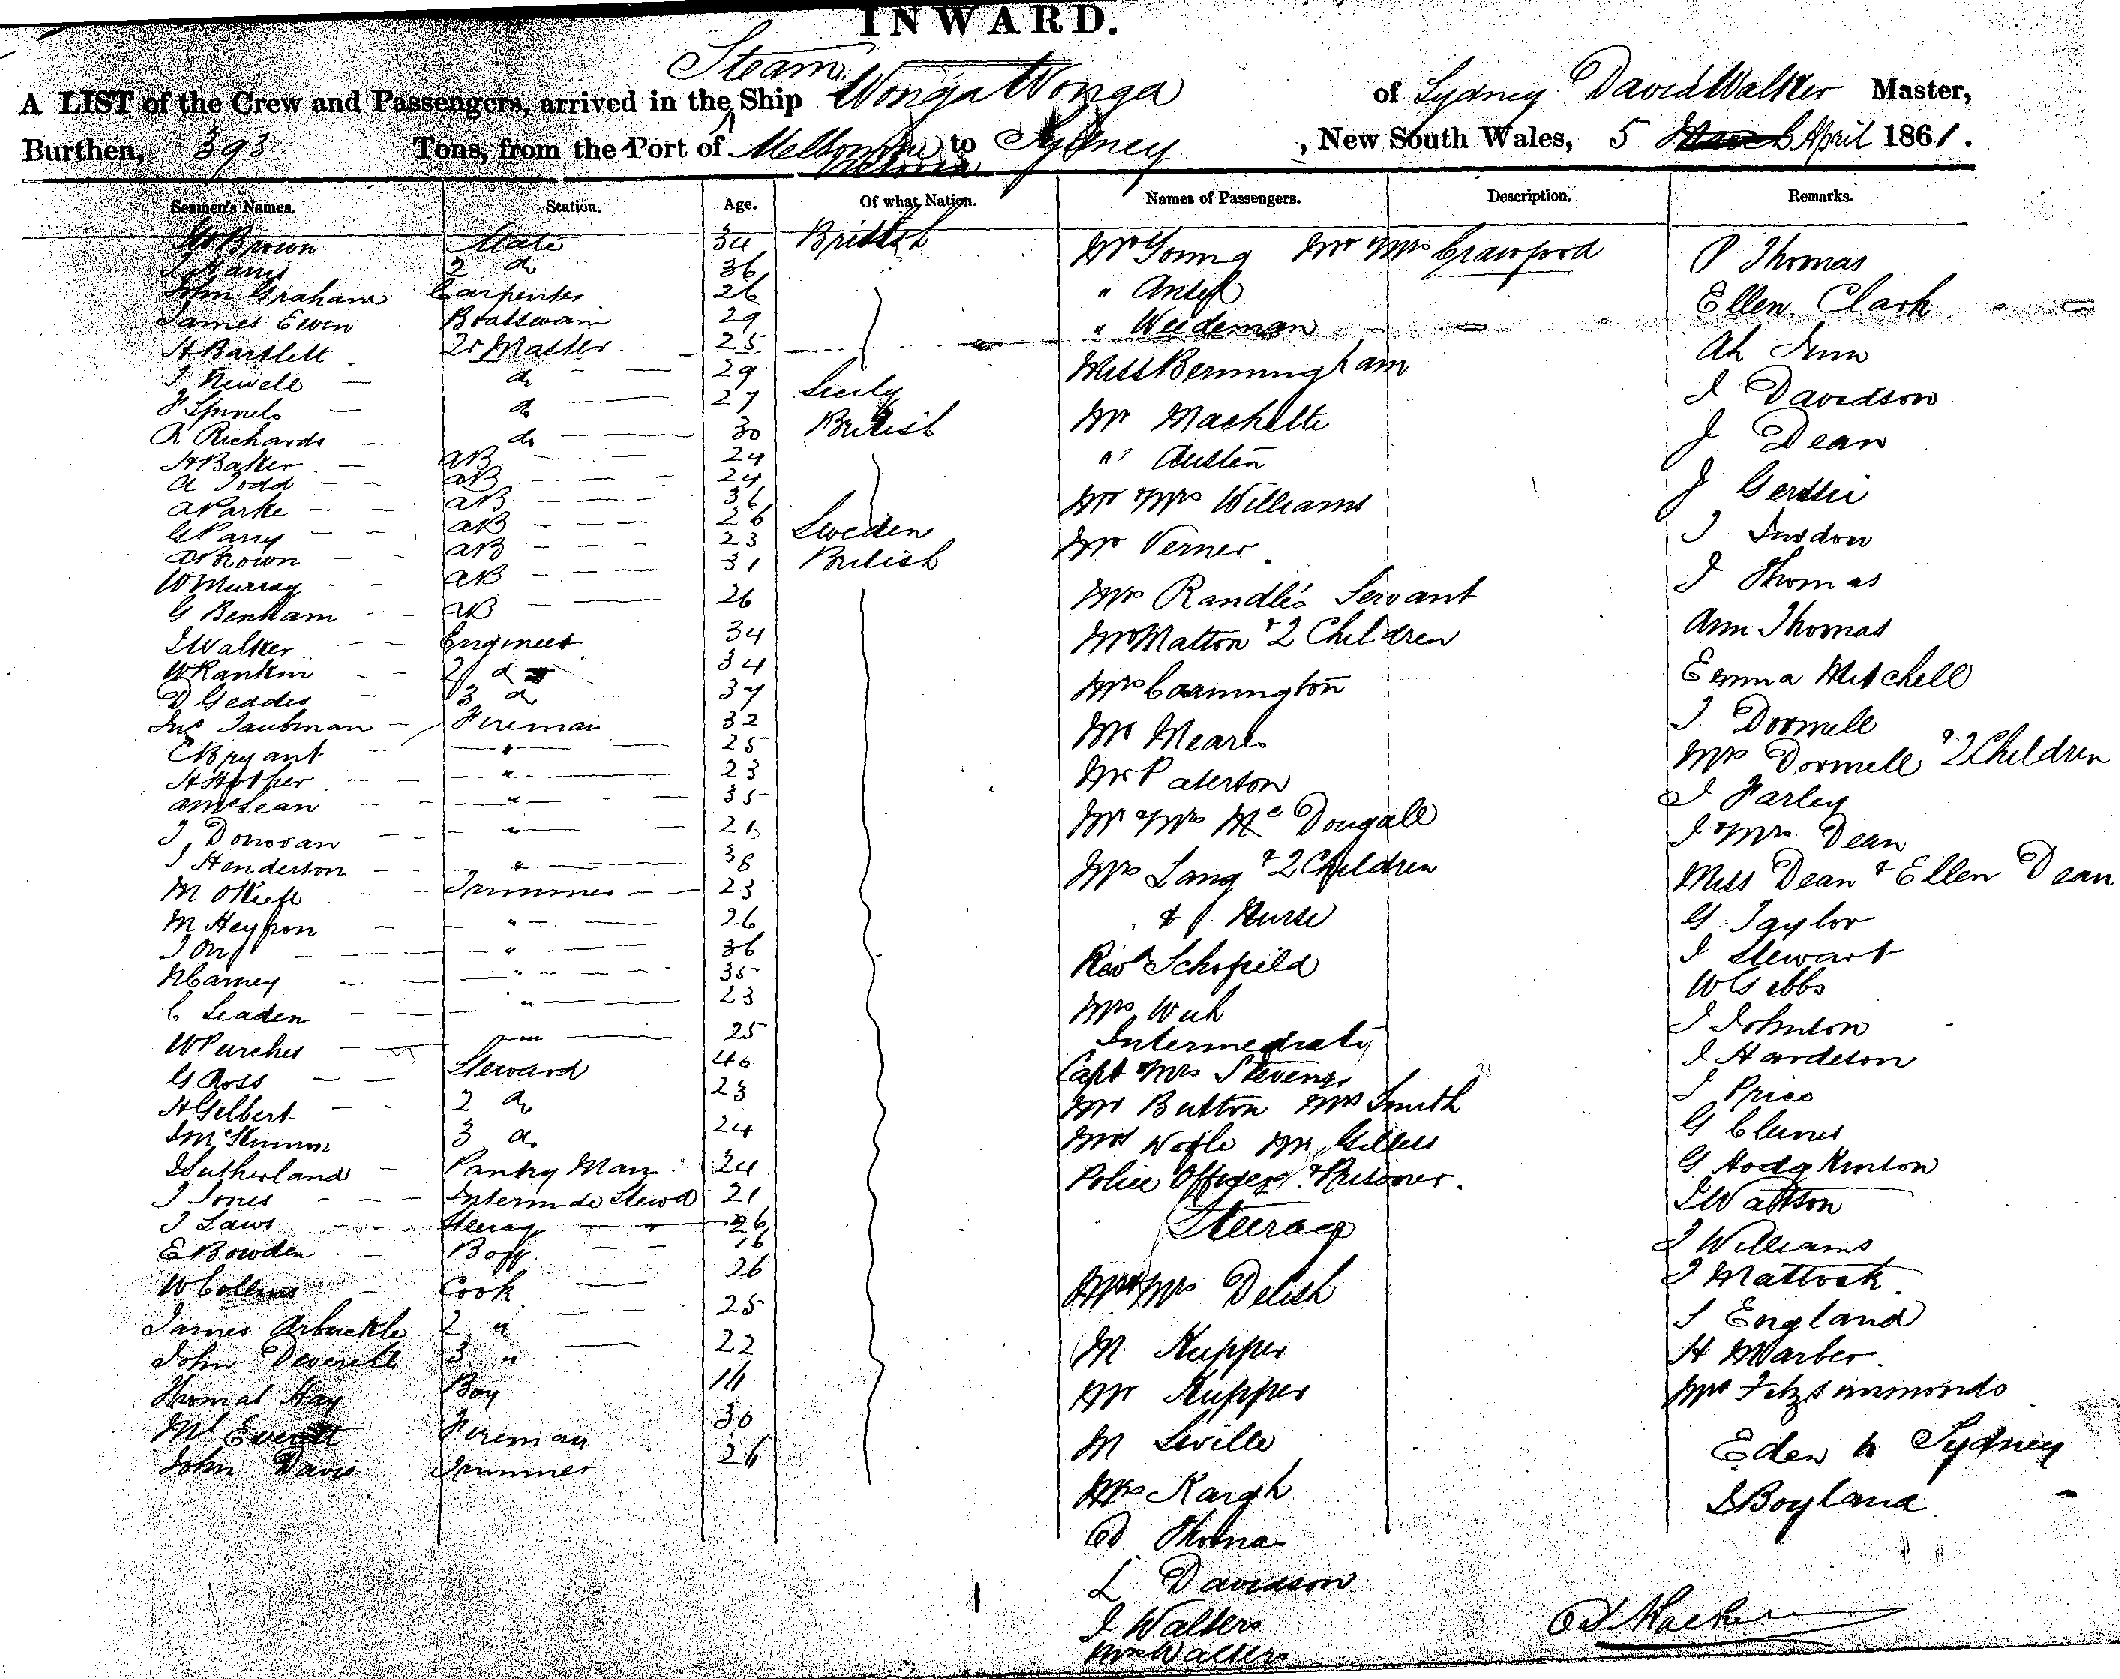 INWARD.
Steam
A LIST of the Crew and Passengers, arrived in the Ship Wonga Wonga of Sydney David Walker Master,
Burthen, 393 Tons, from the Port of Melbourne to Sydney, New South Wales, 5 April 1861.
Seamen's Names. Station. Age. Of what Nation. Names of Passengers. Description. Remarks.
Brown Mate 34 British
2 do 36
John Graham Carpenter 26
James Ewen Boatswain 29
H Bartlett Qr Master 25
J Newell do 29
do 27 Sicily
R Richards do 30 British
H Baker AB 24
A Todd AB 24
A Parke AB 36
G Parry AB 26 Sweden
Brown AB 23 British
W Murray AB 31
G Benham AB 26
J Walker Engineer 34
W Rankin 2 do 34
D Geddes 3 do 37
Jno Taubman Fireman 32
C Bryant " 25
H Hother " 23
A McLean " 35
J Donovan "
J Henderson " 38
M OKeefe Trimmer 23
M Heyfron " 26
J Orr " 36
N Carney " 35
C Leaden " 23
W Purches " 25
G Ross Steward 40
H Gilbert 2 do 23
J McKinnon 3 do 24
J Sutherland Pantry Man 24
J Jones Intermde Stewd 21
J Laws Steerage " 26
E Bowden Boy 16
W Collins Cook 26
James Arbuckle 2 " 25
John Deverell 3 " 22
Thomas Hay Boy
Ml Everett Fireman 30
John Davis Trimmer 26
Mr Young Mr & Mrs Crawford
" Ansell
" Weedeman
Miss Bermingham
Mr Machette
" Austin
Mr & Mrs Williams
Mr Verner
Mrs Randle's Servant
Mr Matton & 2 Children
Mrs Carrington
Mr Meares
Mr Paterton
Mr & Mrs McDougall
Mrs Lang & 2 Children
& Nurse
Revd Schofield
Mrs
Intermediate
Capt & Mrs Stevens
Mr Button Mrs Smith
Mrs Wolfe Mr
Police Officer & Prisoner.
Steerage
Mr & Mrs Delish
M Kupper
Mr Kupper
M Seville
Mrs Kargh
Thomas
L Davidson
J Walters
Walters
P Thomas
Ellen Clark
Ah
J Davidson
J Dean
J
J
J Thomas
Ann Thomas
Emma Mitchell
J Dormell
Mrs Dormell & 2 Children
J Farley
J & Mrs Dean
Miss Dean & Ellen Dean
G Taylor
J Stewart
W Gibbs
J Johnson
J Hardeson
J Price
G
G Hodgkinson
J Wattson
J Williams
J Mattock.
S England
H Warber.
Mrs Fitzsimmonds
Eden to Sydney
J Boyland